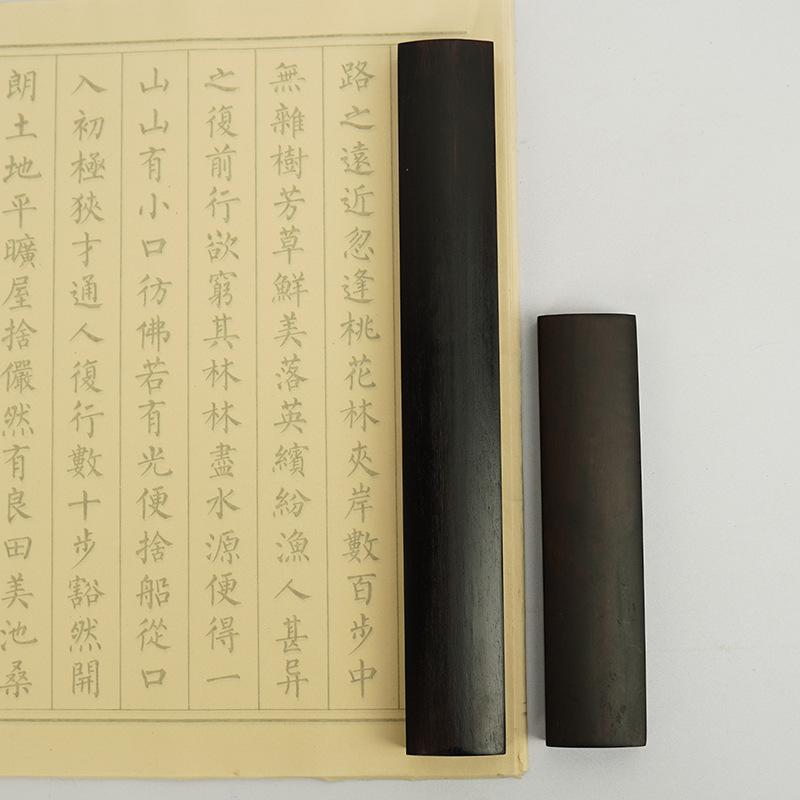 路之遠近忽逢桃花林夾岸數百步中
無雜樹芳草鮮美落英繽紛漁人甚异
之復前行欲窮其林林盡水源便得一
山山有小口彷佛若有光便捨船從口
入初極狹才通人復行數十步豁然開
朗土地平曠屋捨儼然有良田美池桑